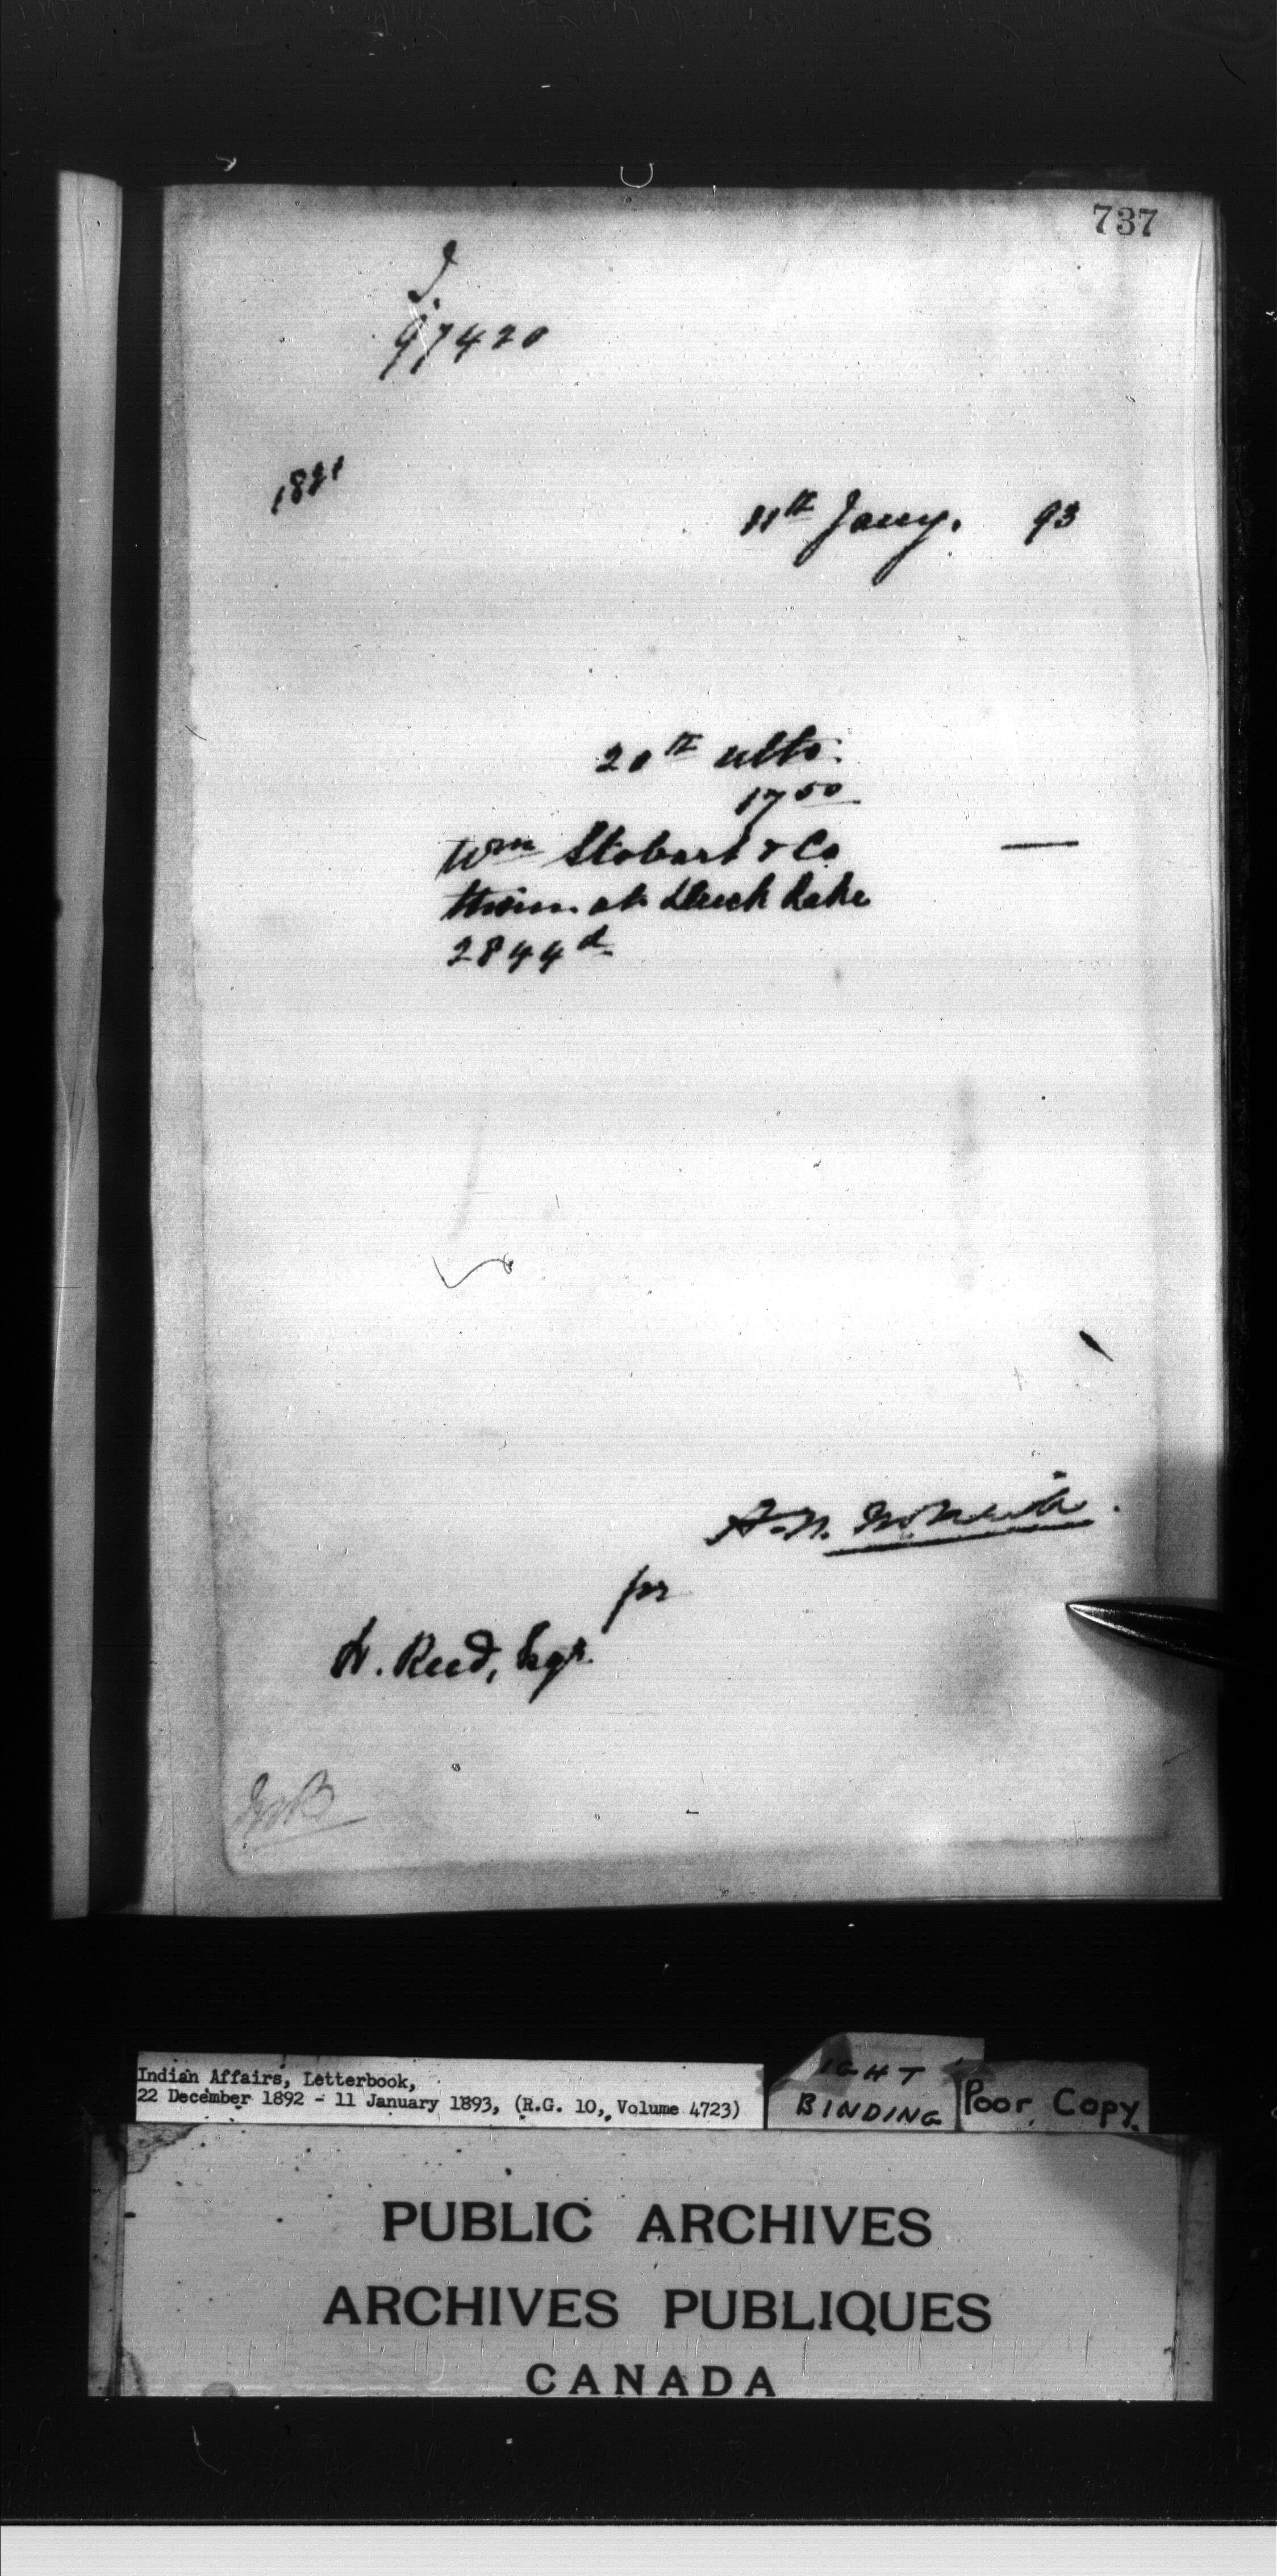 737
97420
11th Jany. 93
20th ulto.
17 50
Wm Stobart & Co
them at Duck Lake
2844 d
A. N. McNeill.
pr
H. Reed, Esqr.
Indian Affairs, Letterbook,
22 December 1892 - 11 January 1893, (R.G. 10, Volume 4723)
IGHT
BINDING
Poor Copy.
PUBLIC ARCHIVES
ARCHIVES PUBLIQUES
CANADA